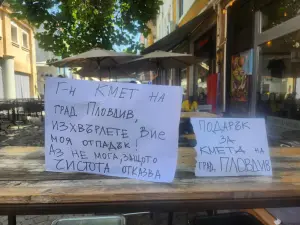 Г-н КМЕТ НА
ГРАД ПЛОВДИВ,
ИЗХВЪРЛЕТЕ ВИЕ
МОЯ ОТПАДЪК!
АЗ НЕ МОГА, ЗАЩОТО
ЧИСТОТА ОТКАЗВА
ПОДАРЪК
ЗА
КМЕТА НА
ГРАД ПЛОВДИВ